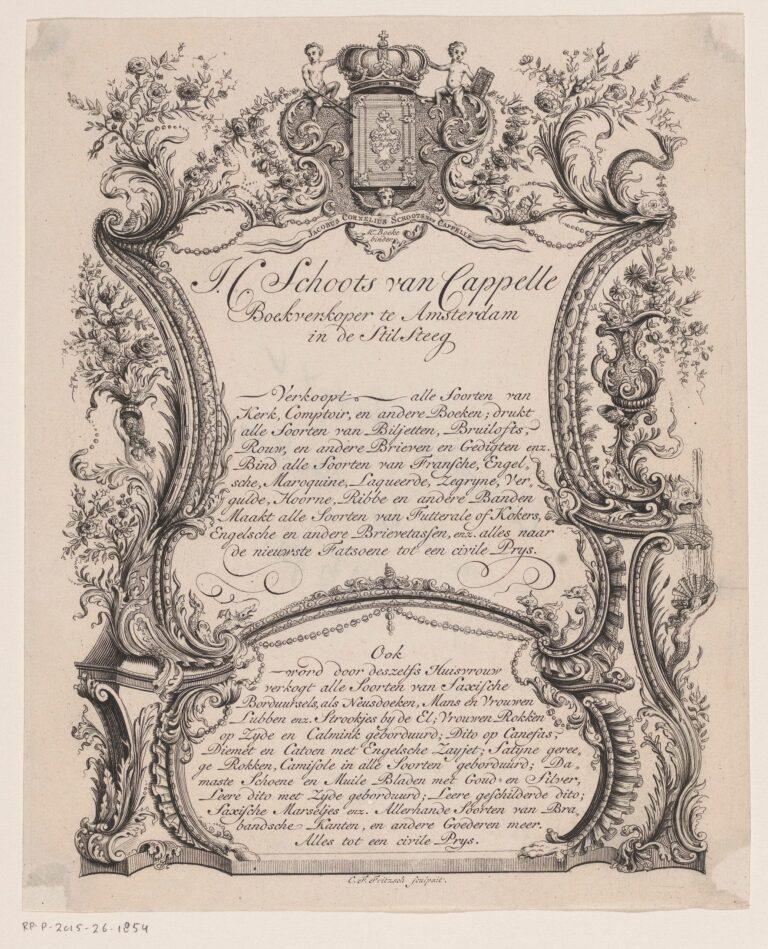 JACOBUS CORNELIUS SCHOOTS VAN CAPPELLE
Mr. Boeke
binder
J. C Schoots van Cappelle
Boekverkoper te Amsterdam
in de Stilsteeg
Verkoopt alle Soorten van
Kerk, Comptoir, en andere Boeken; drukt
alle Soorten van Biljetten, Bruilofts,
Rouw, en andere Brieven en Gedigten enz.
Bind alle Soorten van Fransche, Engel
sche, Maroquine, Laqueerde, Zegryne, Ver,
gulde, Hoorne, Ribbe en andere Banden
Maakt alle Soorten van Futterale of Kokers,
Engelsche en andere Brievetassen, enz. alles naar
de nieuwste Fatsoene tot een civile Prys.
Ook
word door deszelfs Huisvrouw
verkogt alle Soorten van Saxische
Borduursels, als Neusdoeken, Mans en Vrouwen
Lubben enz. Strookjes by de El; Vrouwen Rokken
op Zyde en Calmink geborduurd; Dito op Canefas,
Diemet en Catoen met Engelsche Zayjet; Satyne geree,
ge Rokken, Camisole in alle Soorten geborduurd; Da,
maste Schoene en Muile Bladen met Goud en Silver,
Leere dito met Zyde geborduurd; Leere geschilderde dito;
Saxische Marseljes enz. Allerhande Soorten van Bra,
bandsche Kanten, en andere Goederen meer.
Alles tot een civile Prys.
C. F. Fritzsch sculpsit.
RP-P-2015-26-1854